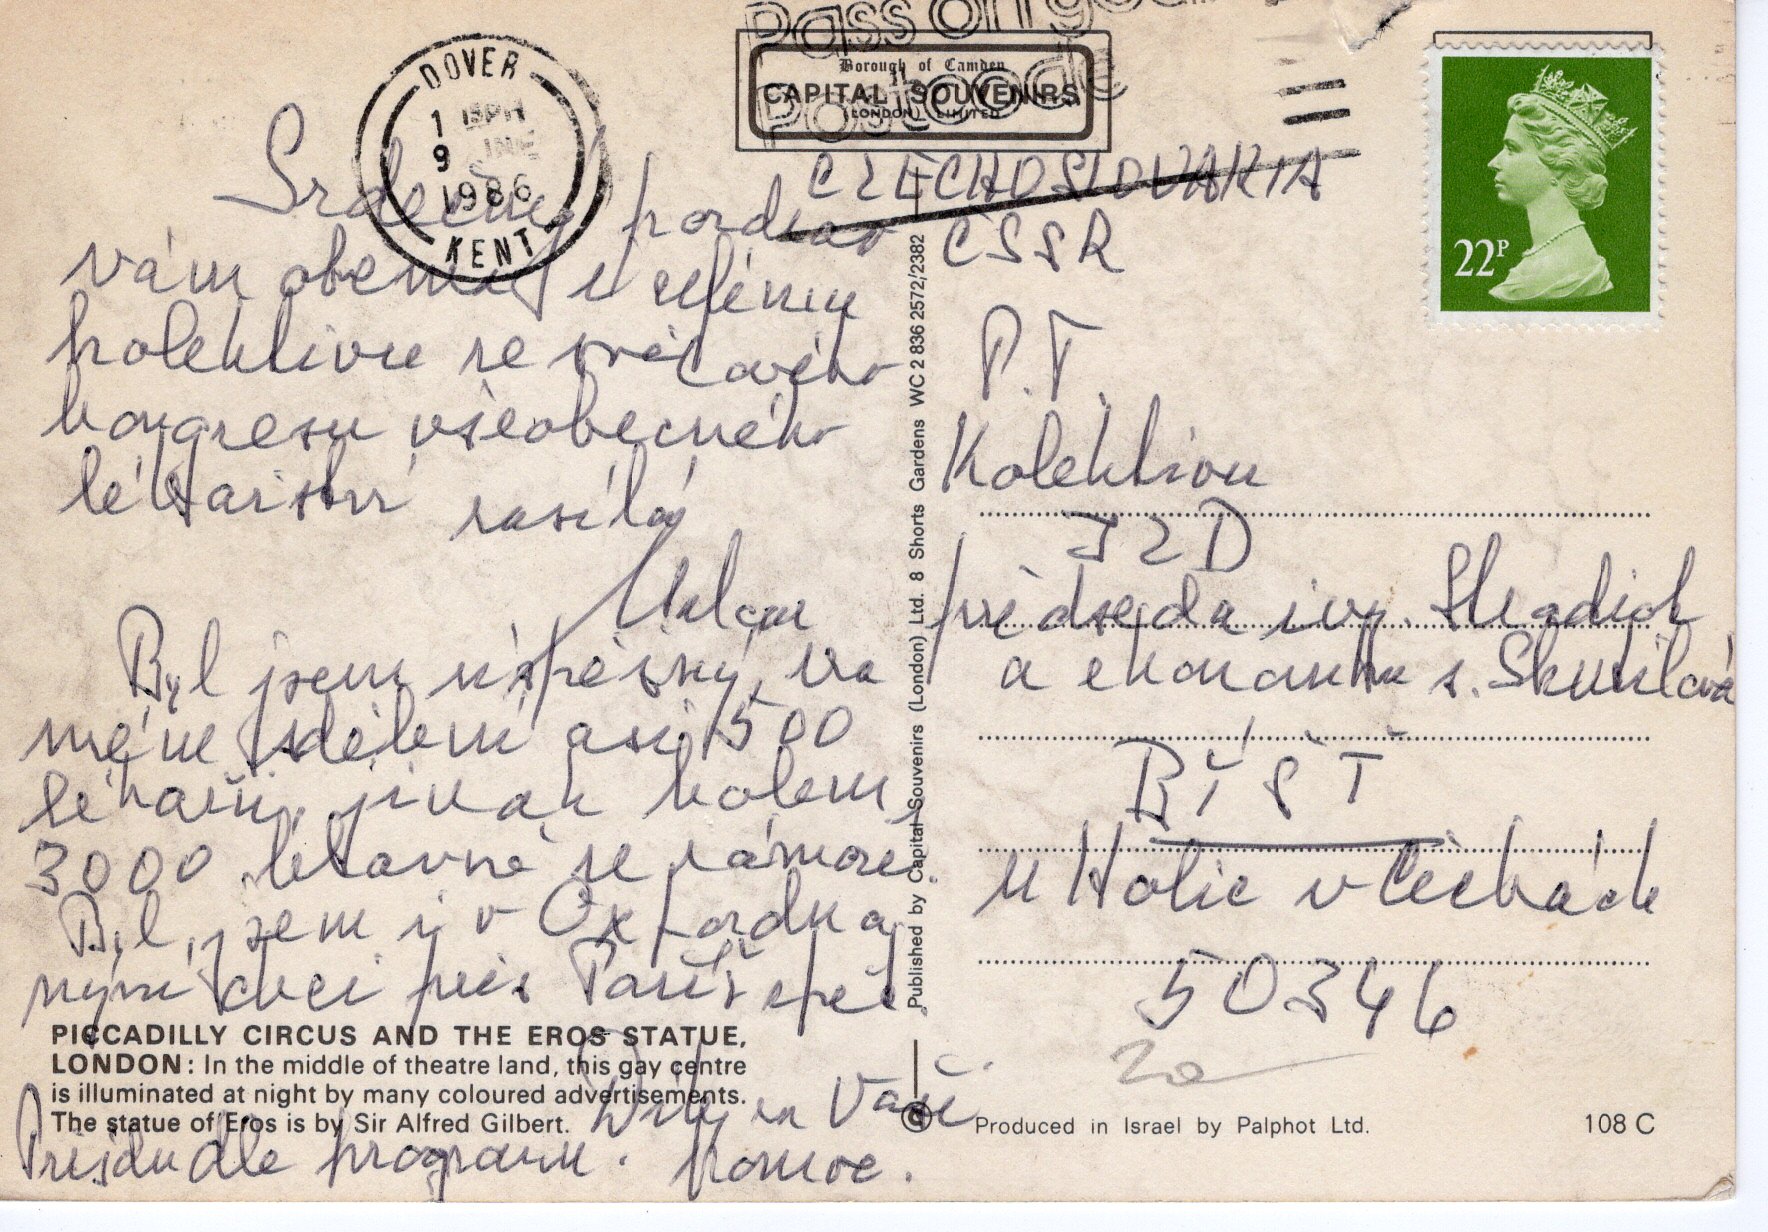 Pass on your
Postcode
Borough of Camden
CAPITAL SOUVENIRS
(LONDON) LIMITED
DOVER
1 PM
9 JNE
1986
KENT
22P
Srdečný pozdrav
vám oběma i celému
kolektivu ze světového
kongresu všeobecného
lékařství zasílá
Byl jsem úspěšný, na
méme sdělení asi 500
lékařů, jinak kolem
3000 hlavně ze zámoří.
Byl jsem i v Oxfordu a
nyní chci přes Paříž zpět.
Díky za Vaši
Přijedu dle programu. pomoc.
PICCADILLY CIRCUS AND THE EROS STATUE,
LONDON: In the middle of theatre land, this gay centre
is illuminated at night by many coloured advertisements.
The statue of Eros is by Sir Alfred Gilbert.
Published by Capital Souvenirs (London) Ltd. 8 Shorts Gardens WC 2 836 2572/2382
CZECHOSLOVAKIA
ČSSR
P.T.
Kolektivu
JZD
předseda ing. Sladich
a ekonomka s. Skutilová
BÝŠŤ
u Holic v Čechách
50346
20
©
Produced in Israel by Palphot Ltd.
108 C